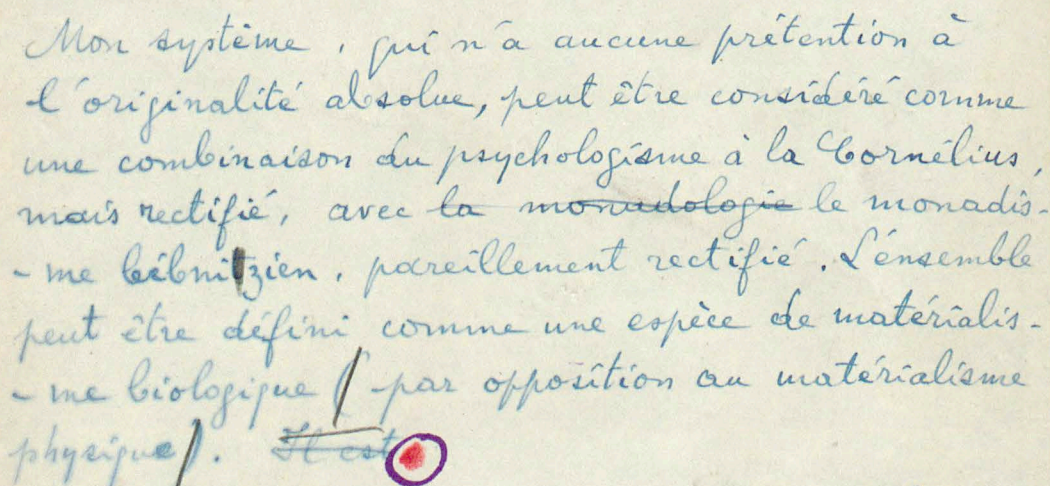 Mon système, qui n'a aucune prétention à
l'originalité absolue, peut être considéré comme
une combinaison du psychologisme à la Cornélius,
mais rectifié, avec la monadologie le monadis-
-me leibnitzien, pareillement rectifié. L'ensemble
peut être défini comme une espèce de matérialis-
-me biologique (par opposition au matérialisme
physique). Il est